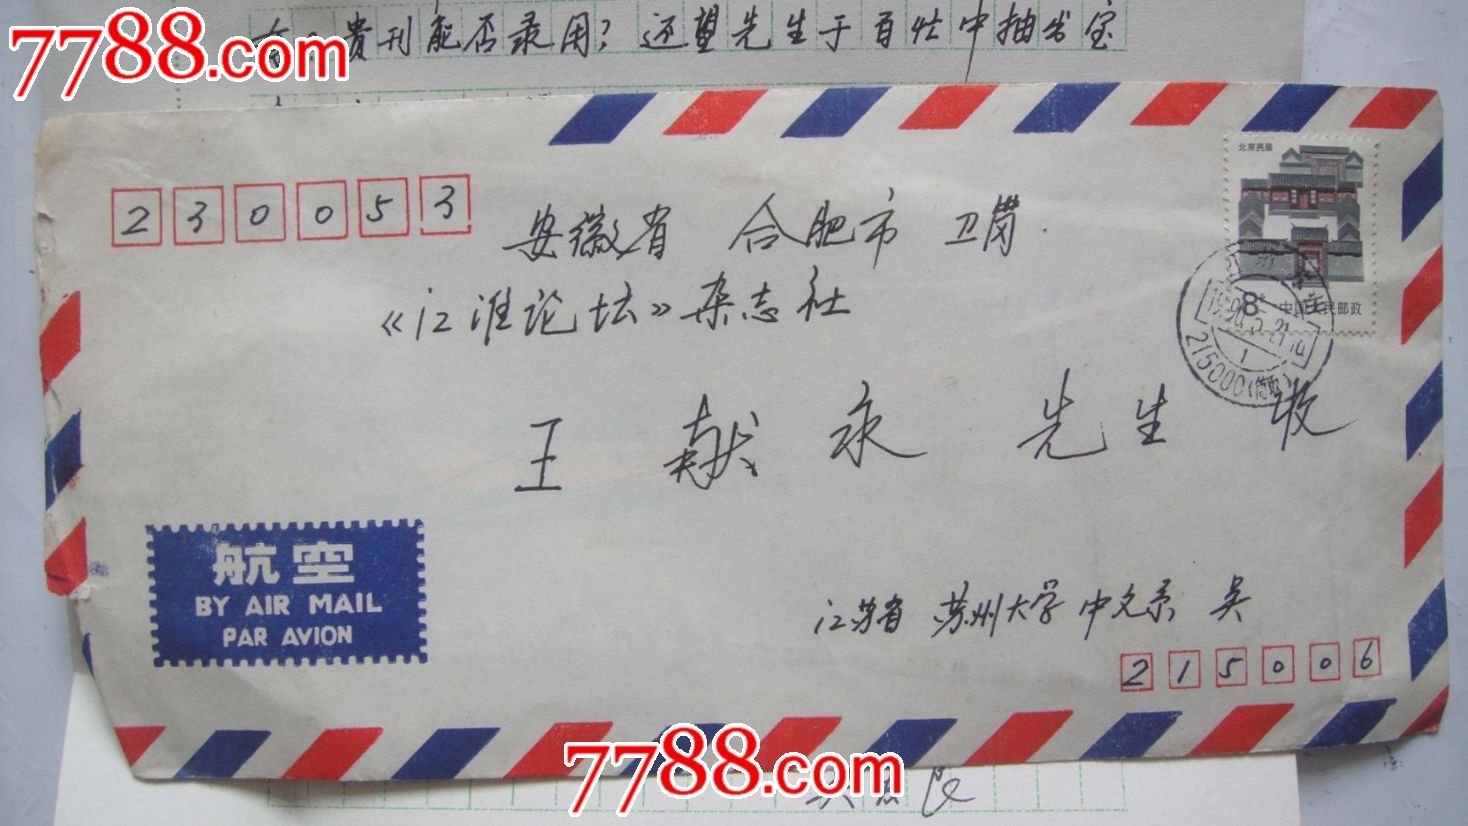 7788.com
贵刊能否录用？还望先生于百忙中抽出宝
230053
安徽省 合肥市 卫岗
《江淮论坛》杂志社
王献永 先生 收
北京民居
8
中国人民邮政
215000
航空
BY AIR MAIL
PAR AVION
江苏省 苏州大学中文系 吴
215006
7788.com